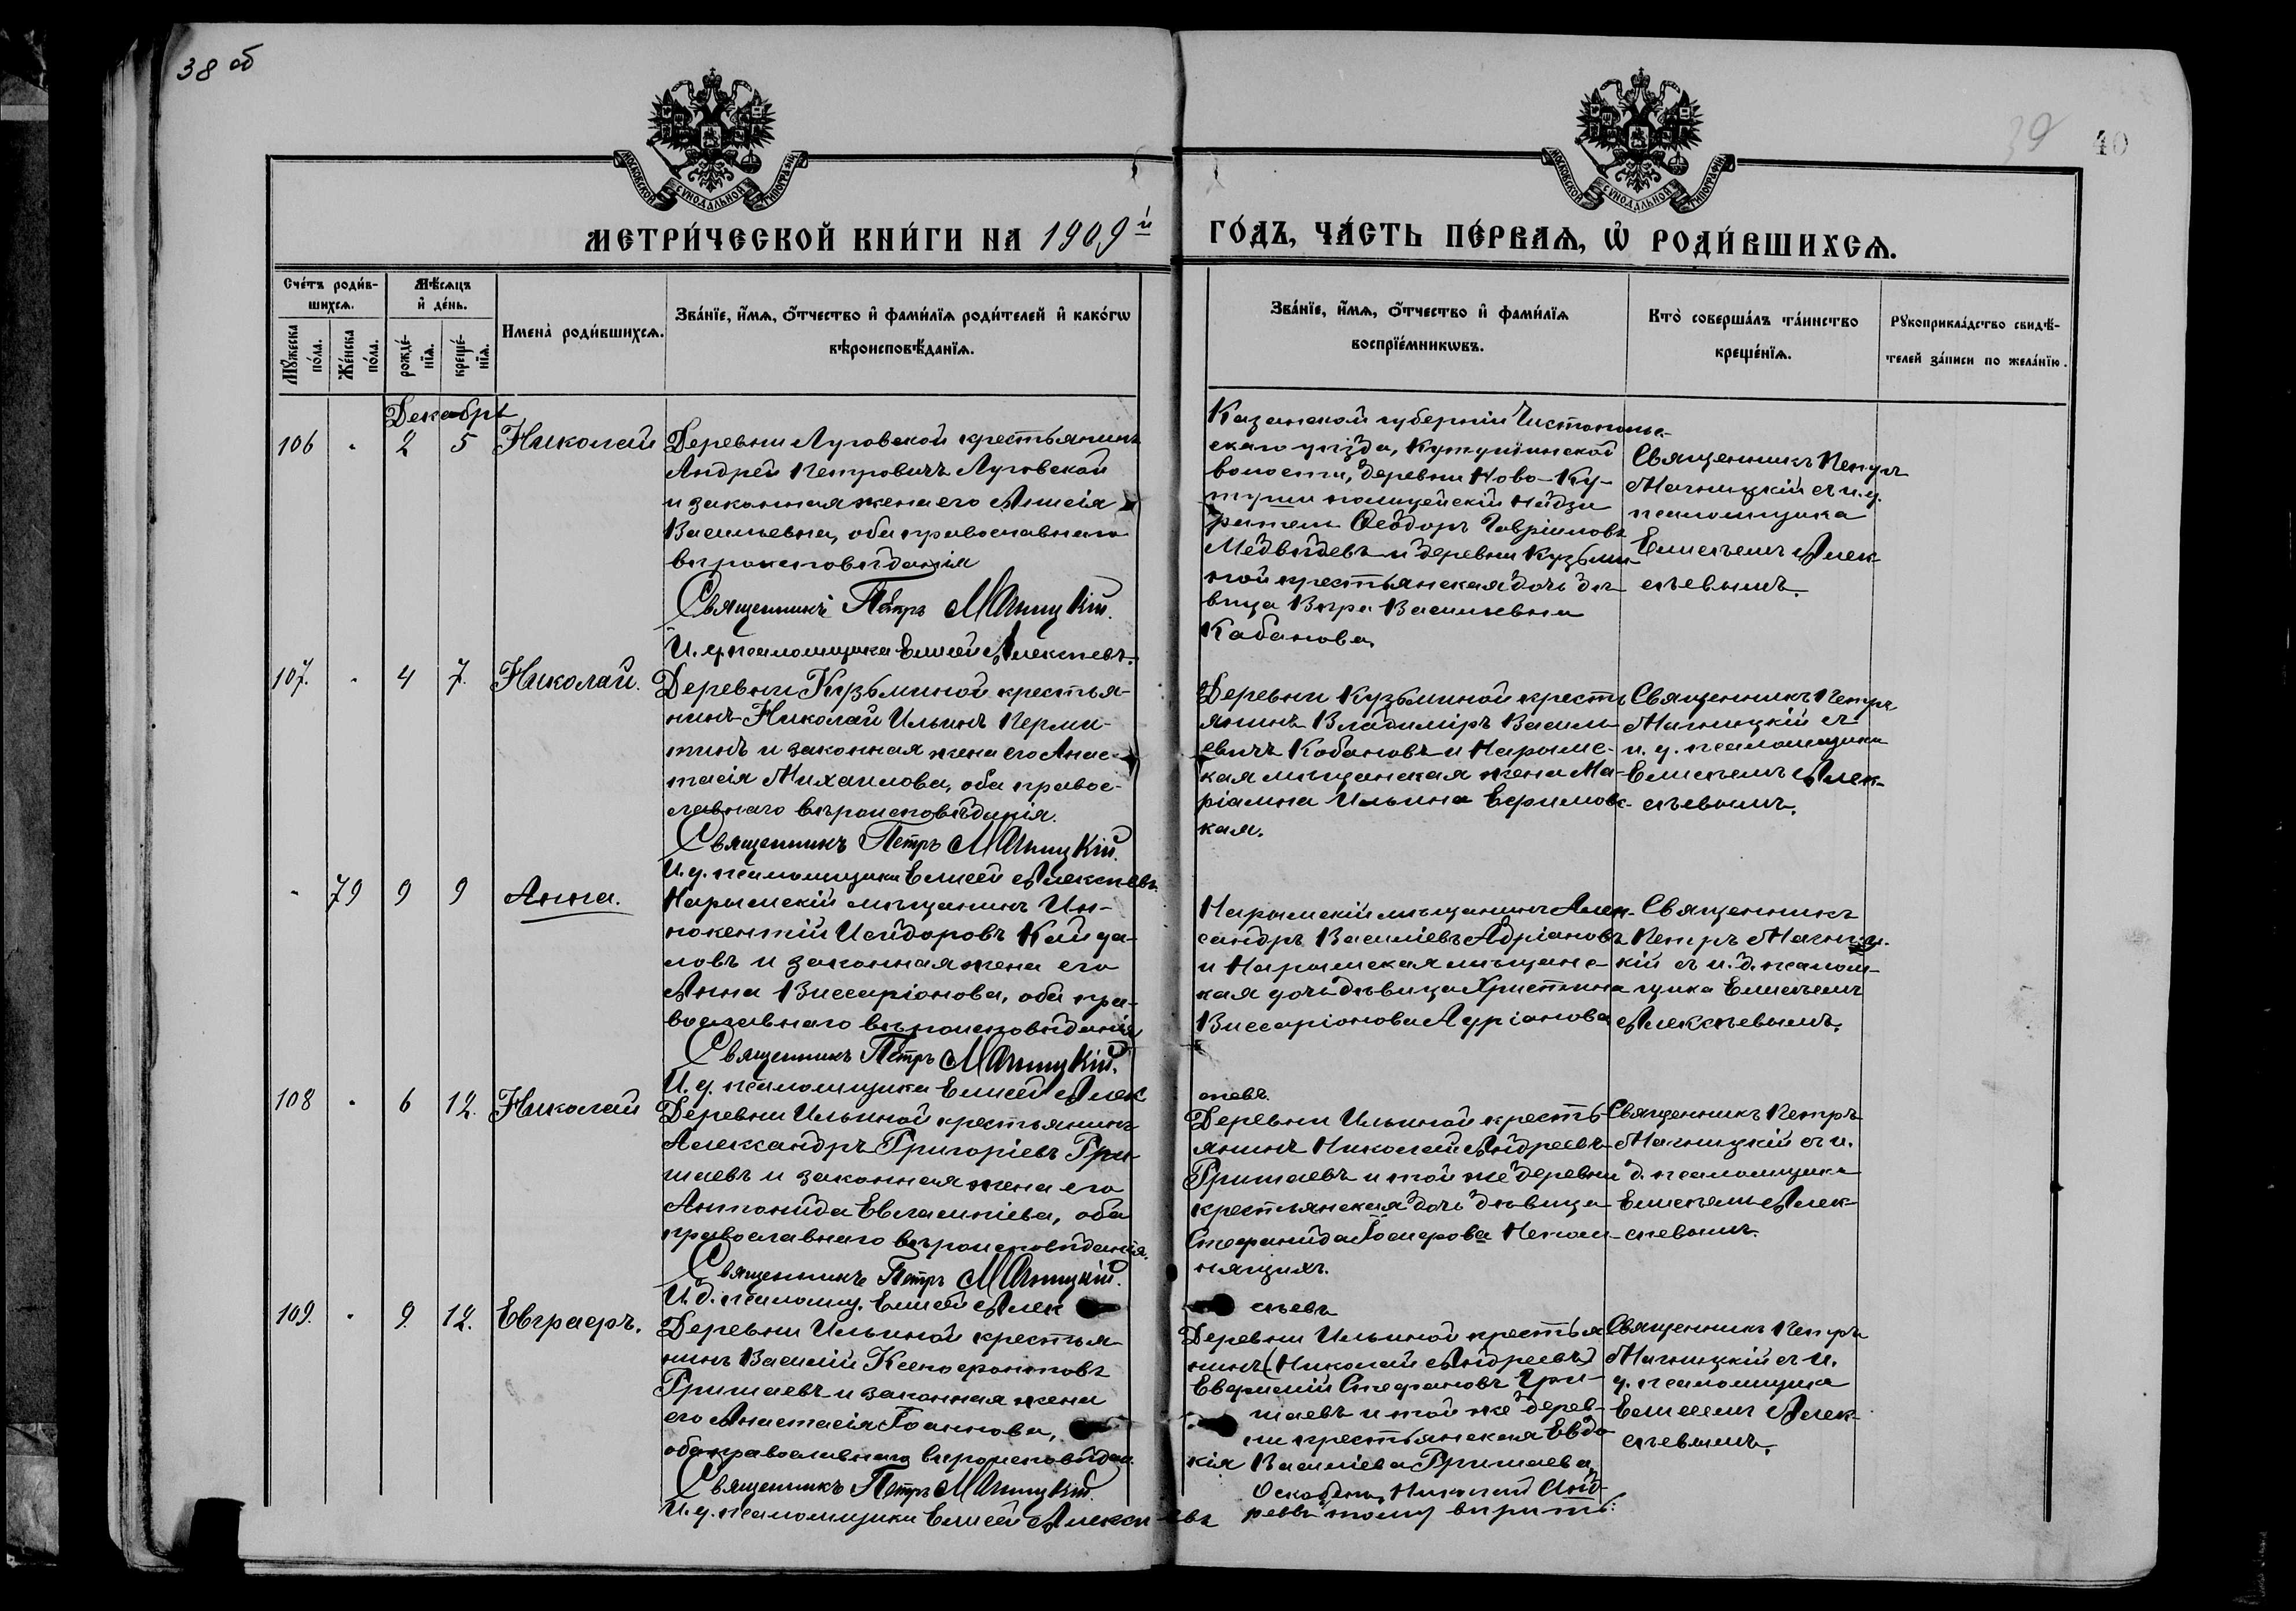 38 об
39
40
МОСКОВСКОЙ СѴНОДАЛЬНОЙ ТИПОГРАФІИ
МОСКОВСКОЙ СѴНОДАЛЬНОЙ ТИПОГРАФІИ
МЕТРИ́ЧЕСКОЙ КНИ́ГИ НА 1909й ГО́ДЪ, ЧА́СТЬ ПЕ́РВАѦ, Ѡ҆ РОДИ́ВШИХСѦ.
Сче́тъ роди́в-
шихсѧ.
Мꙋ́жеска
по́ла.
Же́нска
по́ла.
Мѣ́сѧцъ
и҆ де́нь.
рожде́-
нїѧ.
креще́-
нїѧ.
Имена̀ роди́вшихсѧ.
Зва́нїе, и҆́мѧ, ѻ҆́тчество и҆ фами́лїѧ роди́телей и҆ како́гѡ
вѣроисповѣ́данїѧ.
Зва́нїе, и҆́мѧ, ѻ҆́тчество и҆ фами́лїѧ
воспрїе́мникѡвъ.
Кто̀ соверша́лъ та́инство
креще́нїѧ.
Рꙋкоприкла́дство свидѣ́-
телей за́писи по жела́нїю.
Декабрь
106 - 2 5 Николай
Деревни Луговской крестьянинъ
Андрей Петровичъ Луговской
и законная жена его Анисія
Васильевна, оба православнаго
вѣроисповѣданія
Священникъ Петръ Магницкій.
И. д. псаломщика Елисей Алексѣевъ.
Казанской губерніи Чистополь-
скаго уѣзда, Кутушинской
волости, деревни Ново-Ку-
туши полицейскій надзи
ратель Ѳеодоръ Гавріиловъ
Медвѣдевъ и деревни Кузьми-
ной крестьянская дочь дѣ-
вица Вѣра Васильевна
Кабанова.
Священникъ Петръ
Магницкій съ и. д.
псаломщика
Елисѣемъ Алек-
сѣевымъ.
107. - 4 7. Николай.
Деревни Кузьминой крестья-
нинъ Николай Ильинъ Перми-
тинъ и законная жена его Анас-
тасія Михаилова, оба правос-
лавнаго вѣроисповѣданія.
Священникъ Петръ Магницкій.
И. д. псаломщика Елисей Алексѣевъ.
Деревни Кузьминой кресть
янинъ Владиміръ Василь-
евичъ Кабановъ и Нарымс-
кая мѣщанская жена Ма-
ріамна Ильина Ефимовс-
кая.
Священникъ Петръ
Магницкій съ
и. д. псаломщика
Елисѣемъ Алек-
сѣевымъ.
- 79 9 9 Анна.
Нарымскій мѣщанинъ Ин-
нокентій Исидоровъ Кайда-
ловъ и законная жена его
Анна Виссаріонова, оба пра-
вославнаго вѣроисповѣданія
Священникъ Петръ Магницкій.
И. д. псаломщика Елисей Алек
сѣевъ.
Нарымскій мѣщанинъ Алек-
сандръ Василіевъ Адріановъ
и Нарымская мѣщанс-
кая дочь дѣвица Христина
Виссаріонова Адріанова
Священникъ
Петръ Магниц-
кій съ и. д. псалом-
щика Елисѣемъ
Алексѣевымъ.
108 - 6 12. Николай
Деревни Ильиной крестьянинъ
Александръ Григоріевъ Гри-
шаевъ и законная жена его
Антонида Евлампіева, оба
православнаго вѣроисповѣданія.
Священникъ Петръ Магницкій.
И. д. псаломщ. Елисей Алек
сѣевъ
Деревни Ильиной кресть
янинъ Николай Андреевъ
Гришаевъ и той же деревни
крестьянская дочь дѣвица
Стефанида Іосифова Непом-
нящихъ.
Священникъ Петръ
Магницкій съ и.
д. псаломщика
Елисѣемъ Алек-
сѣевымъ.
109. - 9. 12. Евграфъ.
Деревни Ильиной крестья-
нинъ Василій Ксенофонтовъ
Гришаевъ и законная жена
его Анастасія Іоаннова,
оба православнаго вѣроисповѣдан.
Священникъ Петръ Магницкій.
И. д. псаломщика Елисей Алексѣевъ
Деревни Ильиной крестья
нинъ (Николай Андреевъ)
Евфимій Стефановъ Гри-
шаевъ и той же дерев-
ни крестьянская Евдо
кія Василіева Гришаева.
Оскоблен. Николай Анд-
реевъ тому вѣрить.
Священникъ Петръ
Магницкій съ и.
д. псаломщика
Елисеемъ Алек-
сѣевымъ.